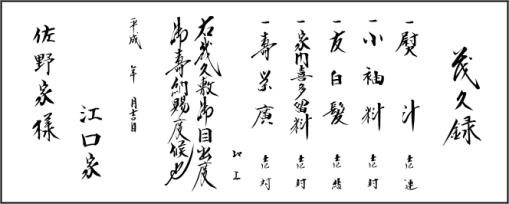 茂久録
一 熨 斗 壱連
一 小袖料 壱封
一 友白髪 壱結
一 家内喜多留料 壱封
一 寿栄廣 壱対
以上
右茂久敷御目出度
御寿納賜度候也
平成 年 月吉日
江口家
佐野家様